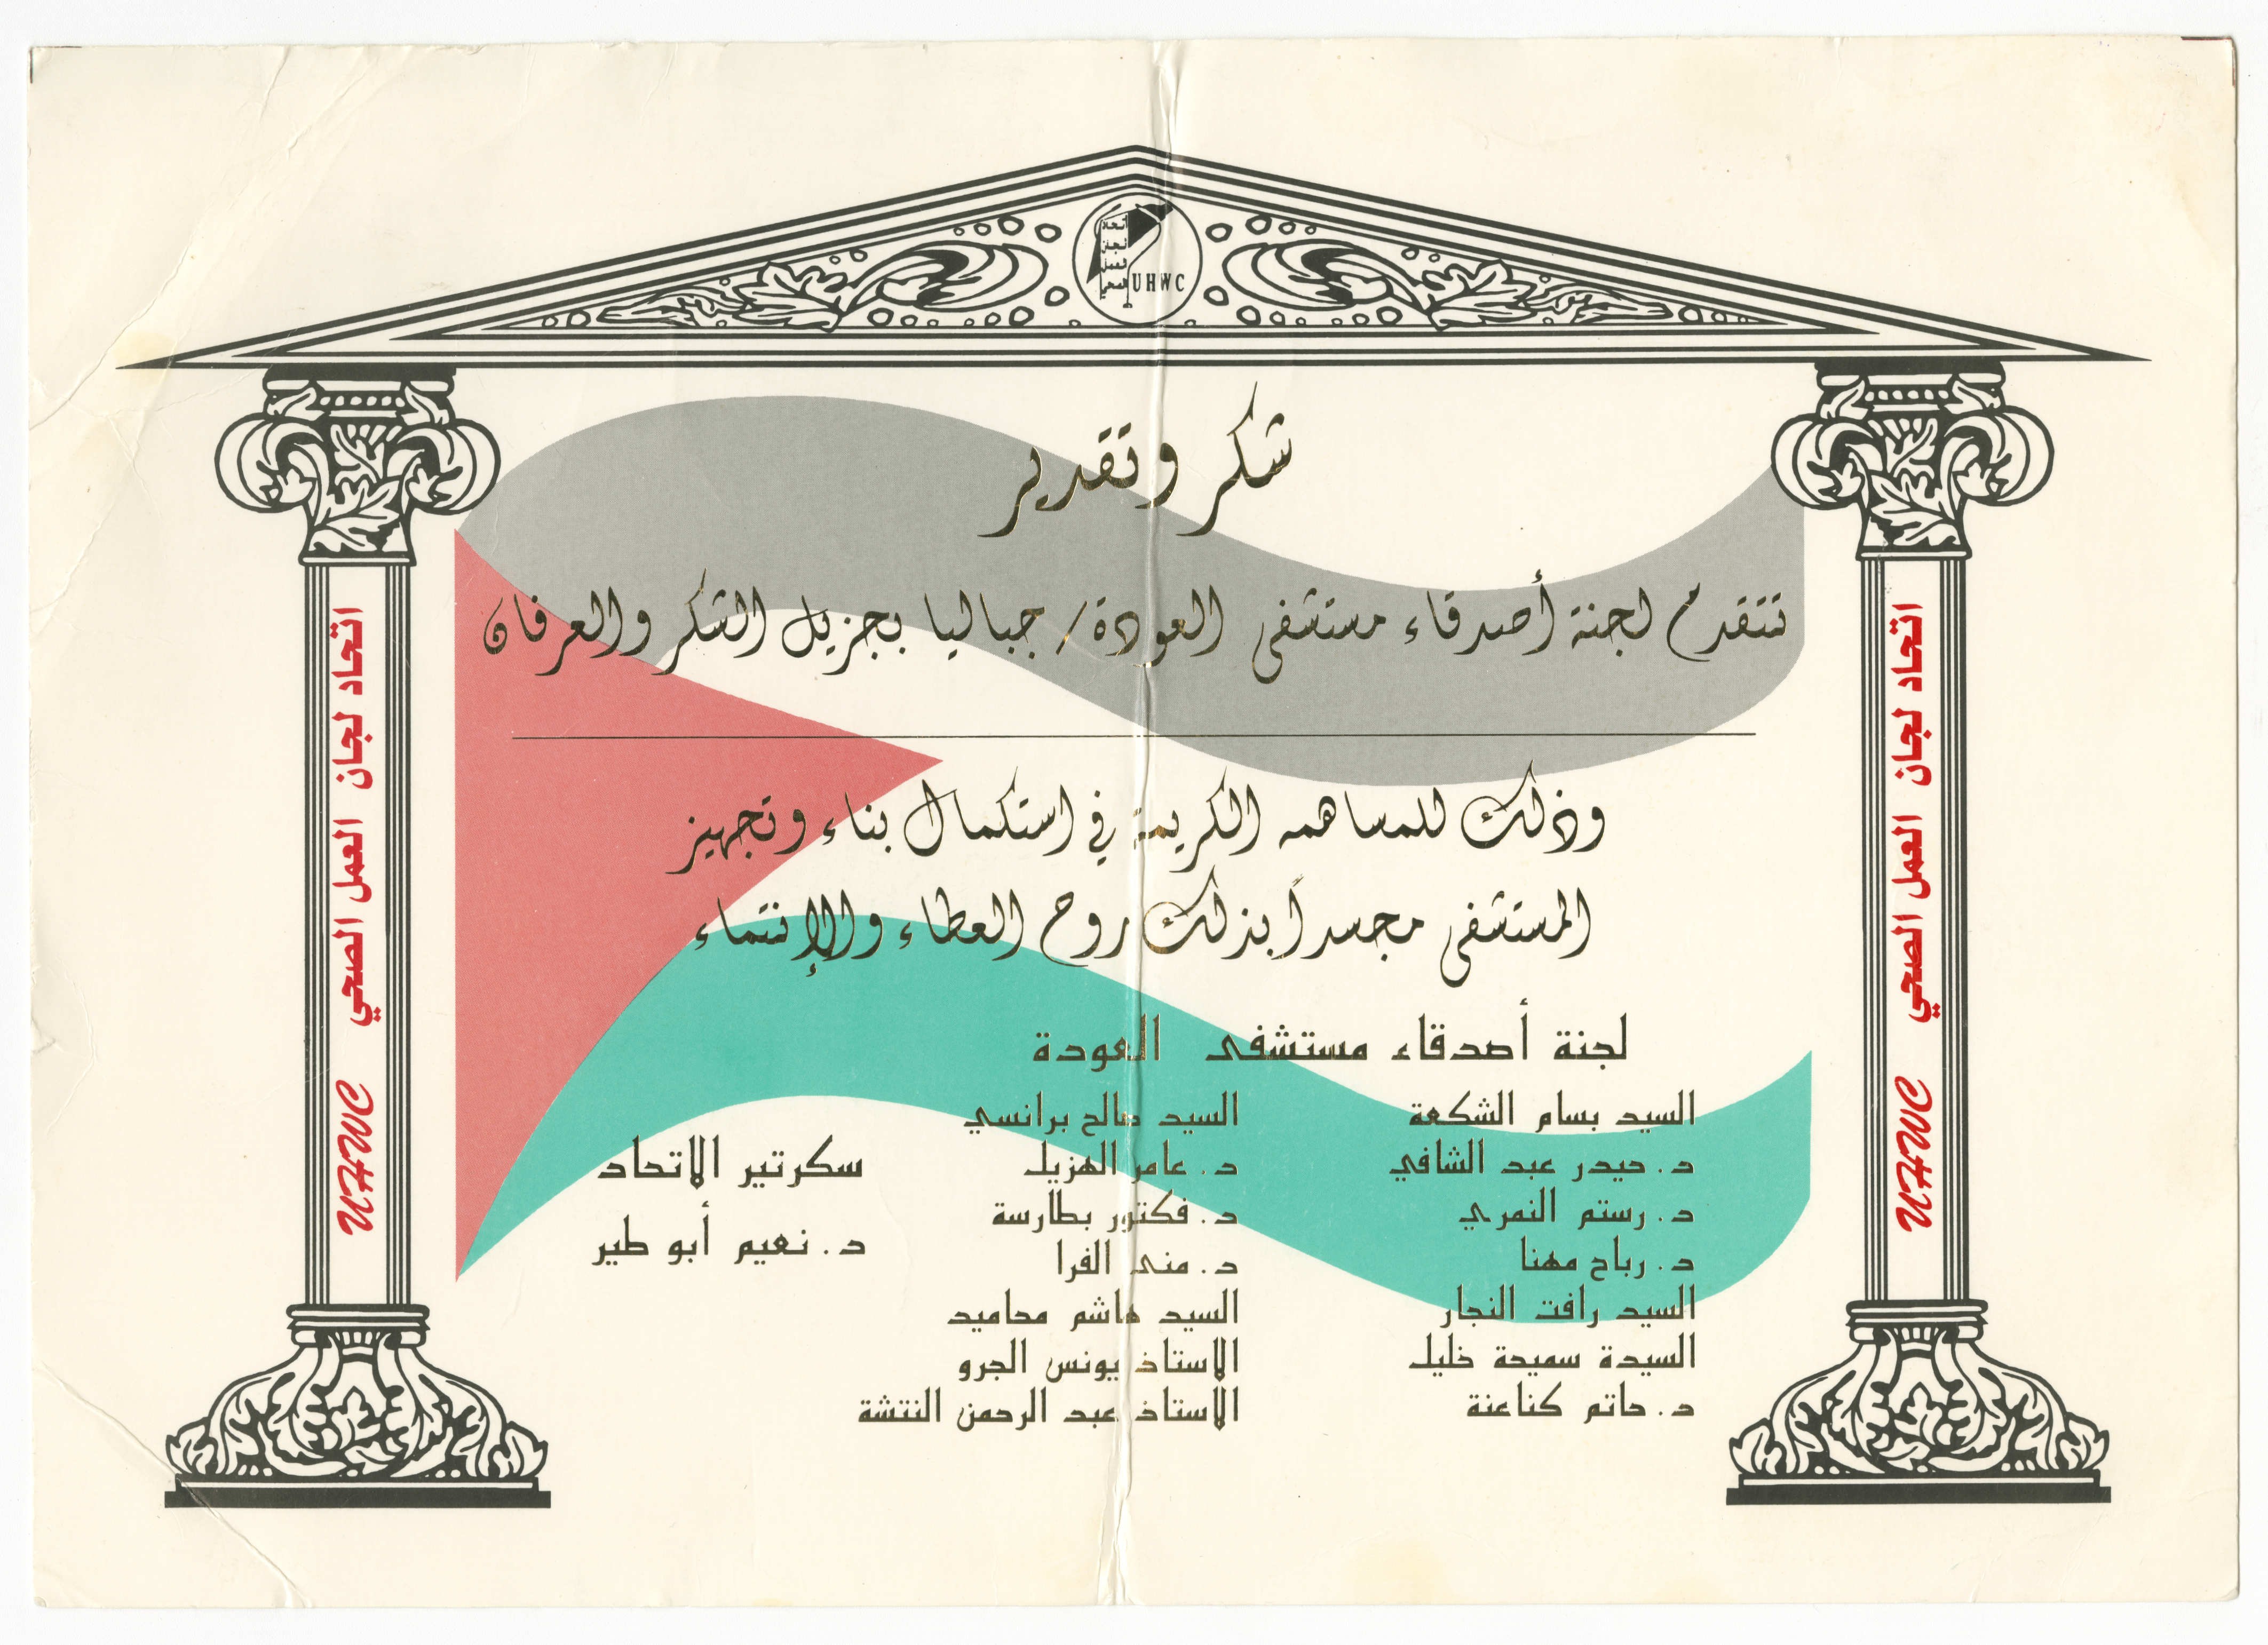 اتحاد
لجان
العمل
الصحي
UHWC
شكر وتقدير
تتقدم لجنة أصدقاء مستشفى العودة/ جباليا بجزيل الشكر والعرفان
وذلك للمساهمه الكريمة في استكمال بناء وتجهيز
المستشفى مجسداً بذلك روح العطاء والإنتماء
لجنة أصدقاء مستشفى العودة
السيد بسام الشكعة
د. حيدر عبد الشافي
د. رستم النمري
د. رباح مهنا
السيد رافت النجار
السيدة سميحة خليل
د. حاتم كناعنة
السيد صالح برانسي
د. عامر الهزيل
د. فكتور بطارسة
د. منى الفرا
السيد هاشم محاميد
الاستاذ يونس الجرو
الاستاذ عبد الرحمن النتشة
سكرتير الاتحاد
د. نعيم أبو طير
اتحاد لجان العمل الصحي UHWC
اتحاد لجان العمل الصحي UHWC